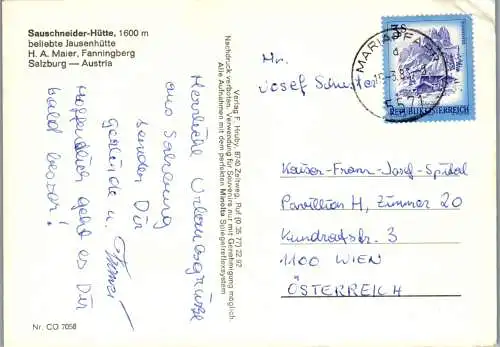 Sauschneider-Hütte, 1600 m
beliebte Jausenhütte
H. A. Maier, Fanningberg
Salzburg — Austria
Herzliche Urlaubsgrüße
aus Salzburg
senden Dir
Gerlinde u.
Hoffentlich geht es Dir
bald besser!
Nr. CO 7058
Verlag F. Hruby, 8740 Zeltweg, Ruf (0 35 77) 22 92
Nachdruck verboten. Verwendung für Souvenirs nur mit Genehmigung möglich.
Alle Aufnahmen mit dem perfekten Minolta Spiegelreflexsystem
MARIAPFARR
5571
3S
REPUBLIK ÖSTERREICH
Mr.
Josef Schuster
Kaiser-Franz-Josef-Spital
Pavillion H, Zimmer 20
Kundratstr. 3
1100 WIEN
ÖSTERREICH